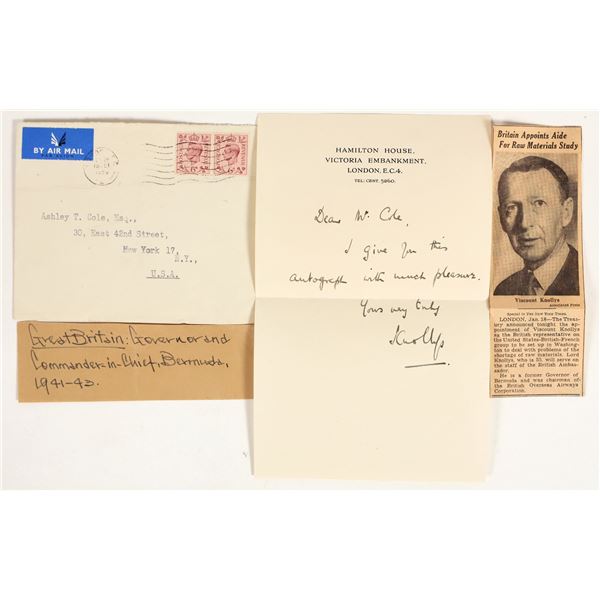 BY AIR MAIL
PAR AVION
Ashley T. Cole, Esq.,
30, East 42nd Street,
New York 17,
N.Y.,
U.S.A.
Great Britain: Governor and
Commander-in-Chief, Bermuda,
1941-43.
HAMILTON HOUSE,
VICTORIA EMBANKMENT,
LONDON, E.C.4.
TEL: CENT. 5960.
Dear Mr. Cole,
I give you this
autograph with much pleasure.
Yours very truly
Knollys
Britain Appoints Aide
For Raw Materials Study
Viscount Knollys
Associated Press
Special to THE NEW YORK TIMES.
LONDON, Jan. 18—The Treas-
ury announced tonight the ap-
pointment of Viscount Knollys as
the British representative on
the United States-British-French
group to be set up in Washing-
ton to deal with problems of the
shortage of raw materials. Lord
Knollys, who is 55, will serve on
the staff of the British Ambas-
sador.
He is a former Governor of
Bermuda and was chairman of
the British Overseas Airways
Corporation.